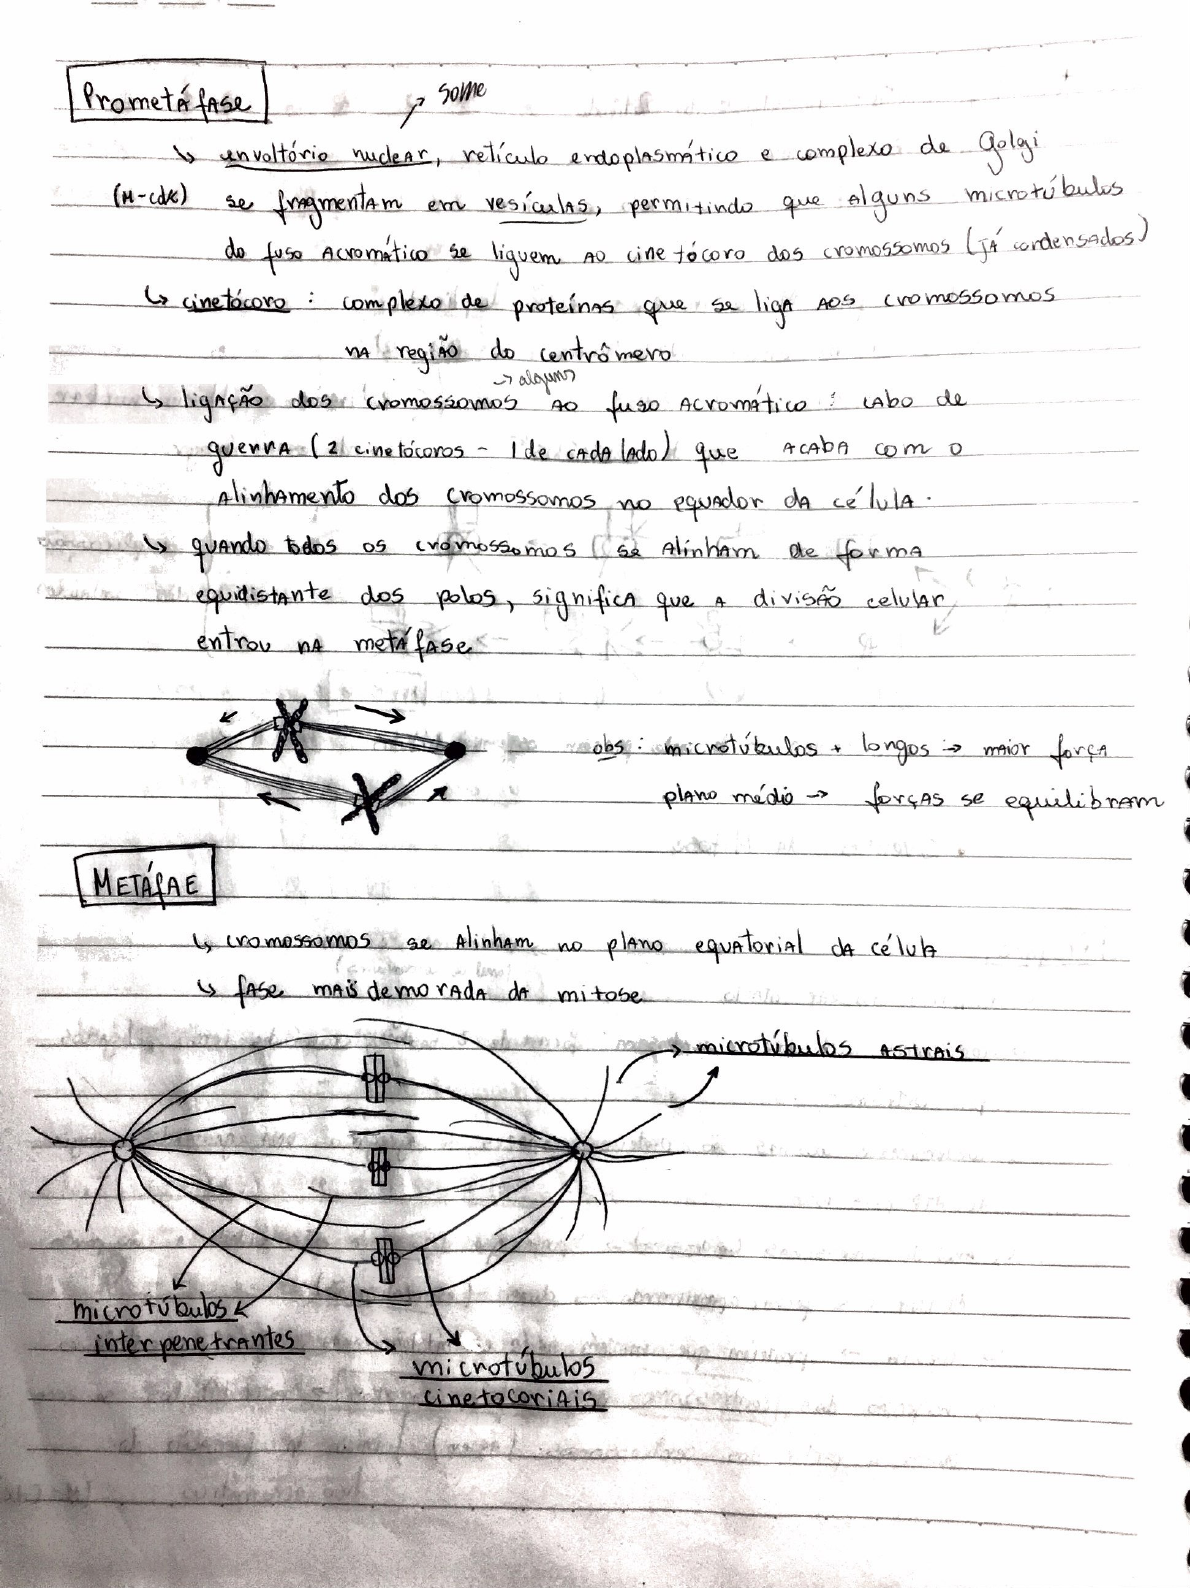 Prometáfase
↗ some
↳ envoltório nuclear, retículo endoplasmático e complexo de Golgi
(M-cdk) se fragmentam em vesículas, permitindo que alguns microtúbulos
do fuso acromático se liguem ao cinetócoro dos cromossomos (já condensados)
↳ cinetócoro : complexo de proteínas que se liga aos cromossomos
na região do centrômero
→ alguns
↳ ligação dos cromossomos ao fuso acromático : cabo de
guerra (2 cinetócoros - 1 de cada lado) que acaba com o
alinhamento dos cromossomos no equador da célula.
↳ quando todos os cromossomos se alinham de forma
equidistante dos polos, significa que a divisão celular
entrou na metáfase
obs : microtúbulos + longos → maior força
plano médio → forças se equilibram
Metáfae
↳ cromossomos se alinham no plano equatorial da célula
↳ fase mais demorada da mitose
microtúbulos astrais
microtúbulos
interpenetrantes
microtúbulos
cinetocoriais